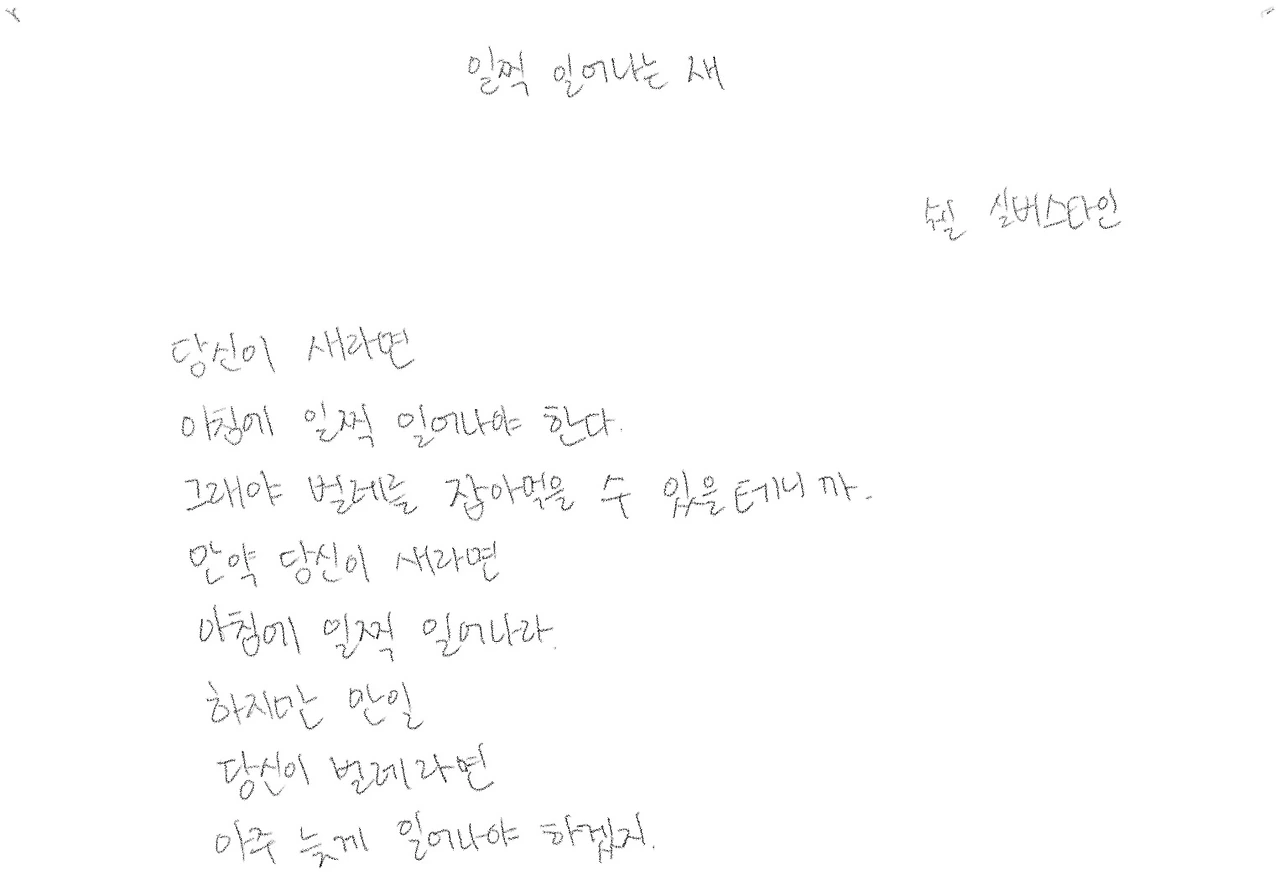 일찍 일어나는 새
쉘 실버스타인
당신이 새라면
아침에 일찍 일어나야 한다.
그래야 벌레를 잡아먹을 수 있을테니까.
만약 당신이 새라면
아침에 일찍 일어나라.
하지만 만일
당신이 벌레라면
아주 늦게 일어나야 하겠지.